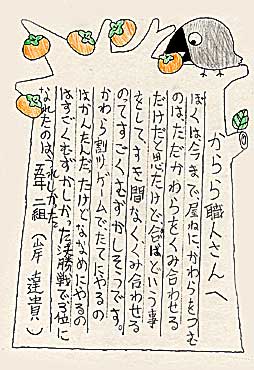 かわら職人さんへ
ぼくは今まで屋ねに、かわらをつむ
のは、ただかわらをくみ合わせる
だけだと思たけど、合ばという事
をして、すき間なくくみ合わせる
のてすごくむずかしそうです。
かわら割りゲームで、たてにやるの
はかんたんだったけどななめにやるの
はすごくむずかしかった決勝戦で3位に
なれたのは、うれしかった。
五年 二組 (岸 達貴)